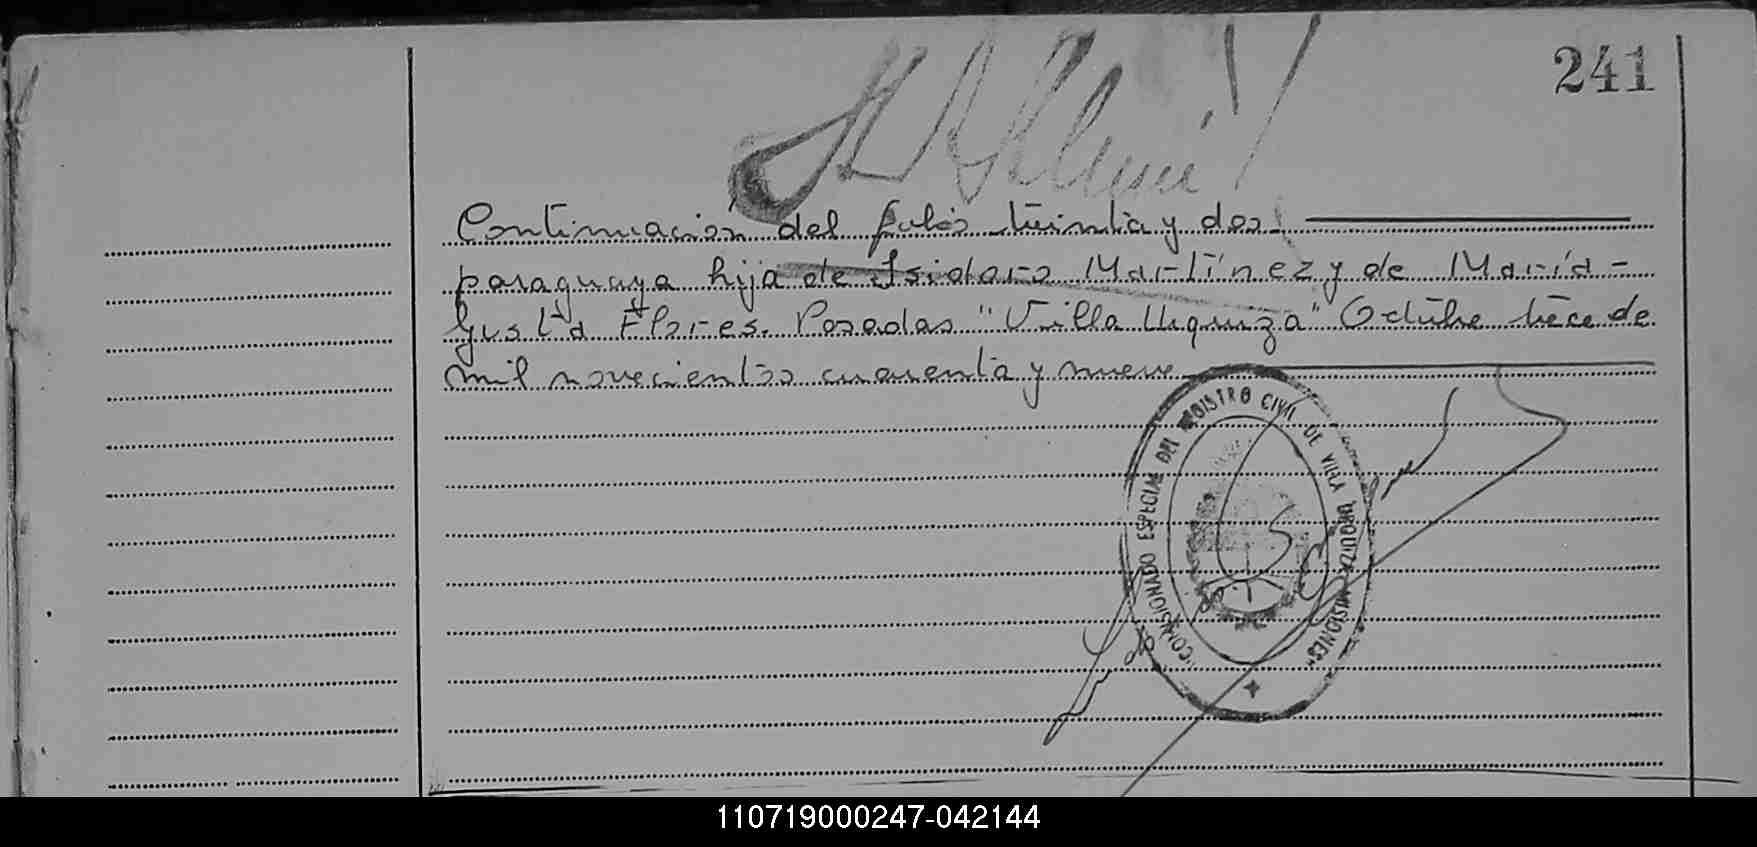 241
Continuación del folio treinta y dos
paraguaya hija de Isidoro Martínez y de María
Gustia Flores. Posadas "Villa Urquiza" Octubre trece de
mil novecientos cuarenta y nueve
"COMISIONADO ESPECIAL DEL REGISTRO CIVIL DE VILLA URQUIZA MISIONES"
110719000247-042144